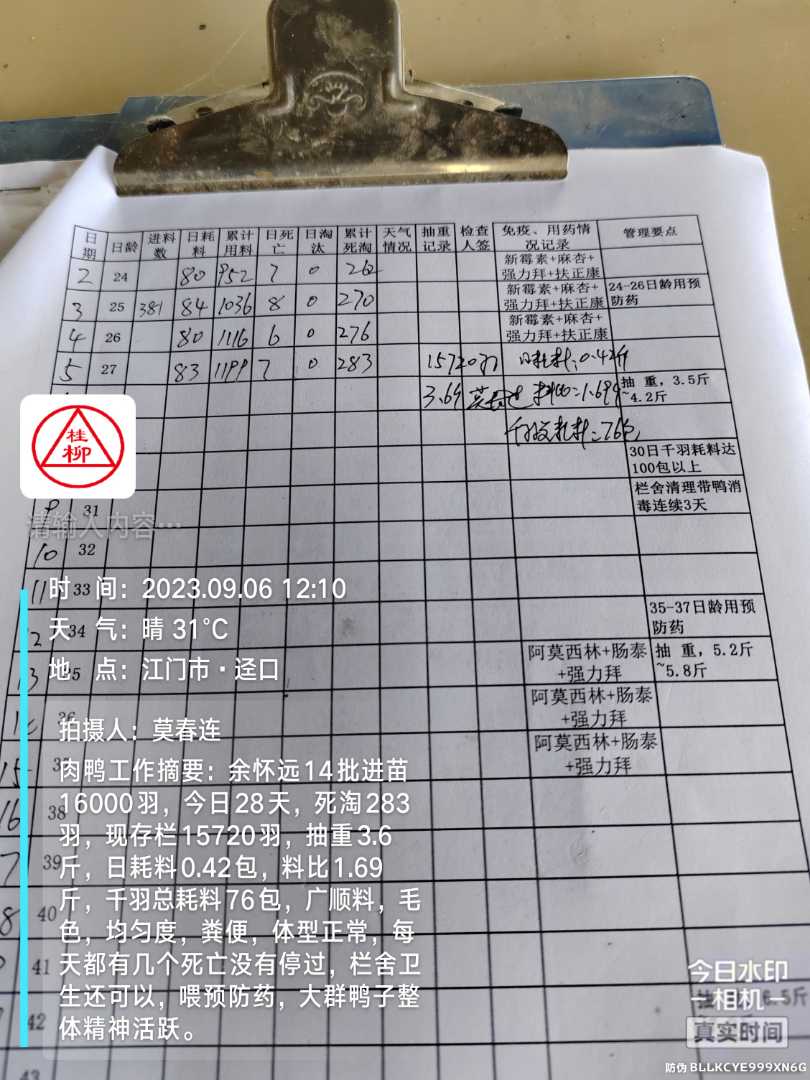 日期 日龄 进料数 日耗料 累计用料 日死亡 日淘汰 累计死淘 天气情况 抽重记录 检查人签 免疫、用药情况记录 管理要点
2 24 80 952 7 0 262 新霉素+麻杏+强力拜+扶正康
3 25 381 84 1036 8 0 270 新霉素+麻杏+强力拜+扶正康 24-26日龄用预防药
4 26 80 1116 6 0 276 新霉素+麻杏+强力拜+扶正康
5 27 83 1199 7 0 283 15720羽 日耗料:0.42斤
3.69 莫春连 料比=1.69 抽重,3.5斤~4.2斤
千羽耗料=76包
30日千羽耗料达100包以上
9 31 栏舍清理带鸭消毒连续3天
10 32
11 33
12 34 35-37日龄用预防药
13 35 阿莫西林+肠泰+强力拜 抽重,5.2斤~5.8斤
36 阿莫西林+肠泰+强力拜
15 阿莫西林+肠泰+强力拜
16 38
7 39
8 40
41
42 6.5斤
43
桂柳
请输入内容…
时 间:2023.09.06 12:10
天 气:晴 31℃
地 点:江门市·迳口
拍摄人:莫春连
肉鸭工作摘要:余怀远14批进苗
16000羽,今日28天,死淘283
羽,现存栏15720羽,抽重3.6
斤,日耗料0.42包,料比1.69
斤,千羽总耗料76包,广顺料,毛
色,均匀度,粪便,体型正常,每
天都有几个死亡没有停过,栏舍卫
生还可以,喂预防药,大群鸭子整
体精神活跃。
今日水印
相机
真实时间
防伪 BLLKCYE999XN6G